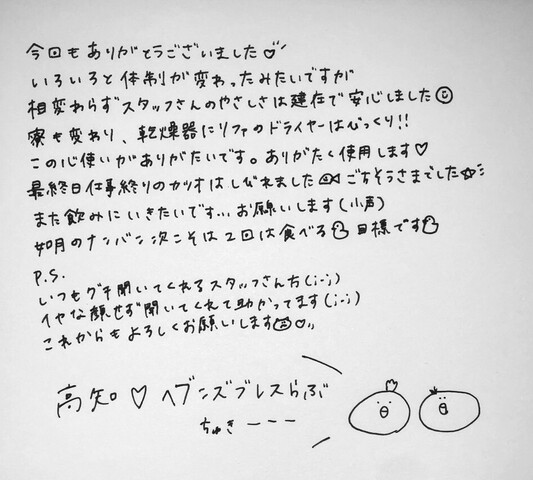 今回もありがとうございました♡
いろいろと体制が変わったみたいですが
相変わらずスタッフさんのやさしさは健在で安心しました☺
寮も変わり、乾燥器にリファのドライヤーはびっくり!!
この心使いがありがたいです。ありがたく使用します♡
最終日仕事終りのカツオはしびれました🐟ごちそうさまでした
また飲みにいきたいです...お願いします(小声)
如月のナンバン次こそは2回は食べる目標です
P.S.
いつもグチ聞いてくれるスタッフさん方(;-;)
イヤな顔せず聞いてくれて助かってます(;-;)
これからもよろしくお願いします♡
高知♡ヘブンズブレスらぶ
ちゅきーーー